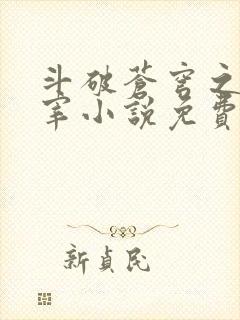 斗破蒼穹之
宰小說免費
新貞民